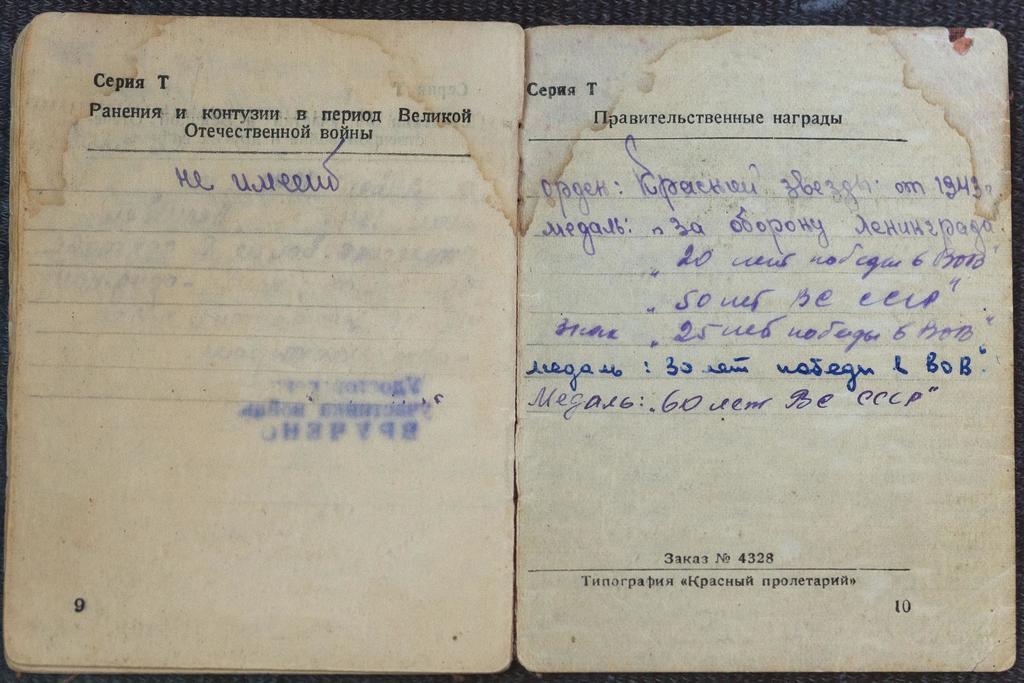 Серия Т
Ранения и контузии в период Великой
Отечественной войны
не имеет
Удостоверение
участника войны
ВРУЧЕНО
9
Серия Т
Правительственные награды
орден: Красной звезды от 1943 г
медаль: "За оборону Ленинграда
" 20 лет победы в ВОВ"
" 50 лет ВС СССР"
знак "25 лет победы в ВОВ"
медаль: 30 лет победы в ВОВ"
Медаль: "60 лет ВС СССР"
Заказ № 4328
Типография «Красный пролетарий»
10